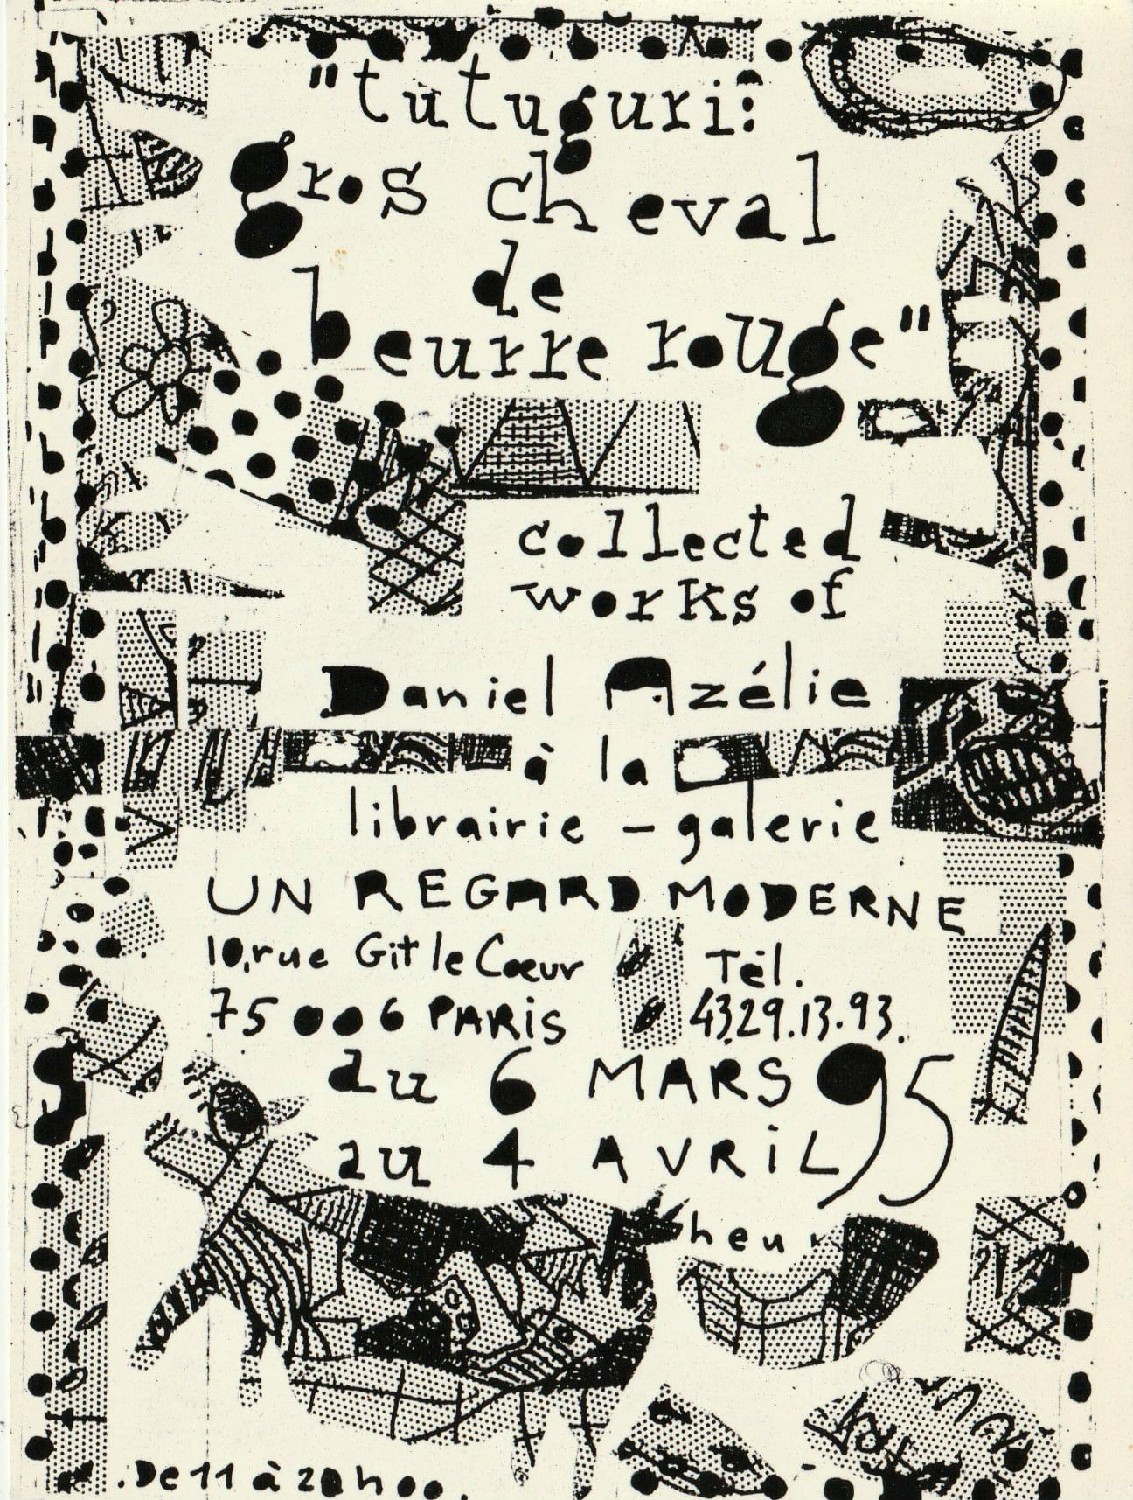 "tutuguri:
gros cheval
de
beurre rouge"
collected
works of
Daniel Azélie
à la
librairie - galerie
UN REGARD MODERNE
10, rue Gît le Cœur
75006 PARIS
Tél.
43.29.13.93.
du 6 MARS 95
au 4 AVRIL
.De 11 à 20h00.